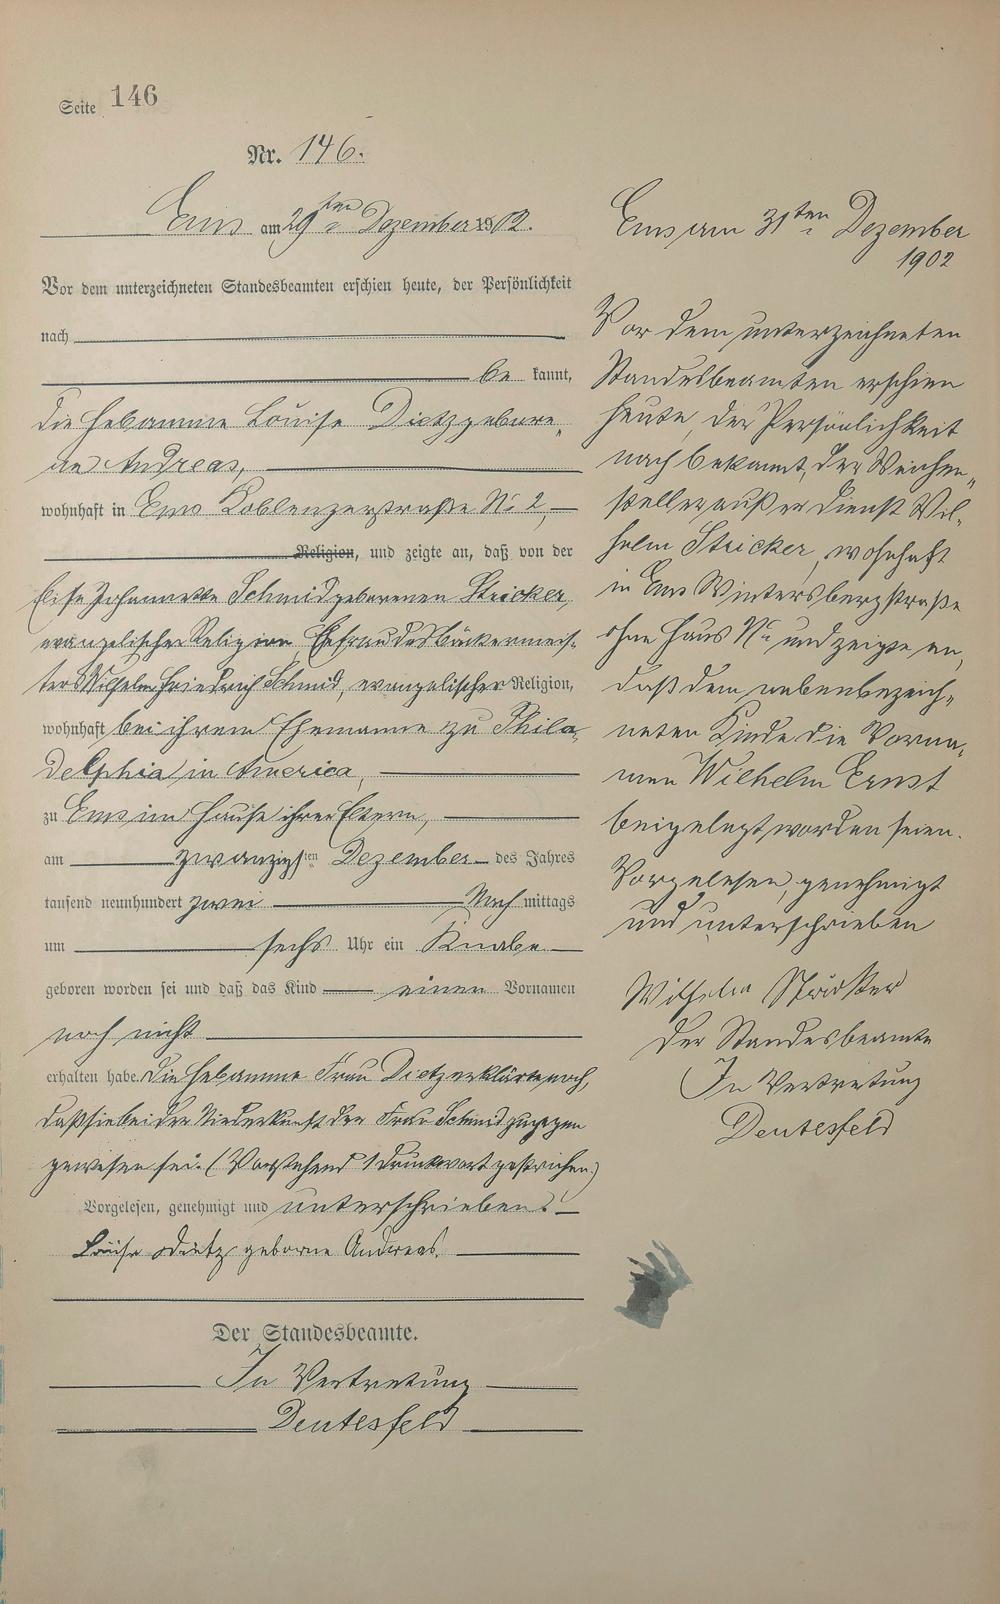 Seite 146
Nr. 146.
Ems am 29ten Dezember 1902.
Vor dem unterzeichneten Standesbeamten erschien heute, der Persönlichkeit
nach
be kannt,
die Hebamme Louise Dietz gebore„
ne Andreas,
wohnhaft in Ems Coblenzerstraße No 2,
Religion, und zeigte an, daß von der
Elise Johannette Schmid geborenen Stricker,
evangelischer Religion, Ehefrau des Bäckermeis„
ters Wilhelm Friedrich Schmid, evangelischer Religion,
wohnhaft bei ihrem Ehemanne zu Phila„
delphia in America,
zu Ems im Hause ihrer Eltern,
am zwanzigsten Dezember des Jahres
tausend neunhundert zwei Nach mittags
um sechs Uhr ein Knabe
geboren worden sei und daß das Kind einen Vornamen
noch nicht
erhalten habe. Die Hebamme Frau Dietz erklärte noch,
daß sie bei der Niederkunft der Frau Schmid zugegen
gewesen sei. (Vorstehend 1 Druckwort gestrichen.)
Vorgelesen, genehmigt und unterschrieben:
Louise Dietz geborne Andreas.
Der Standesbeamte.
In Vertretung
Deutesfeld
Ems am 31ten Dezember
1902
Vor dem unterzeichneten
Standesbeamten erschien
heute, der Persönlichkeit
nach bekannt, der Weichen„
steller außer Dienst Wil„
helm Stricker, wohnhaft
in Ems Wintersbergstraße
ohne Haus No und zeigte an,
daß dem nebenbezeich„
neten Kinde die Vorna„
men Wilhelm Ernst
beigelegt worden seien.
Vorgelesen, genehmigt
und unterschrieben
Wilhelm Stricker
Der Standesbeamte
In Vertretung
Deutesfeld